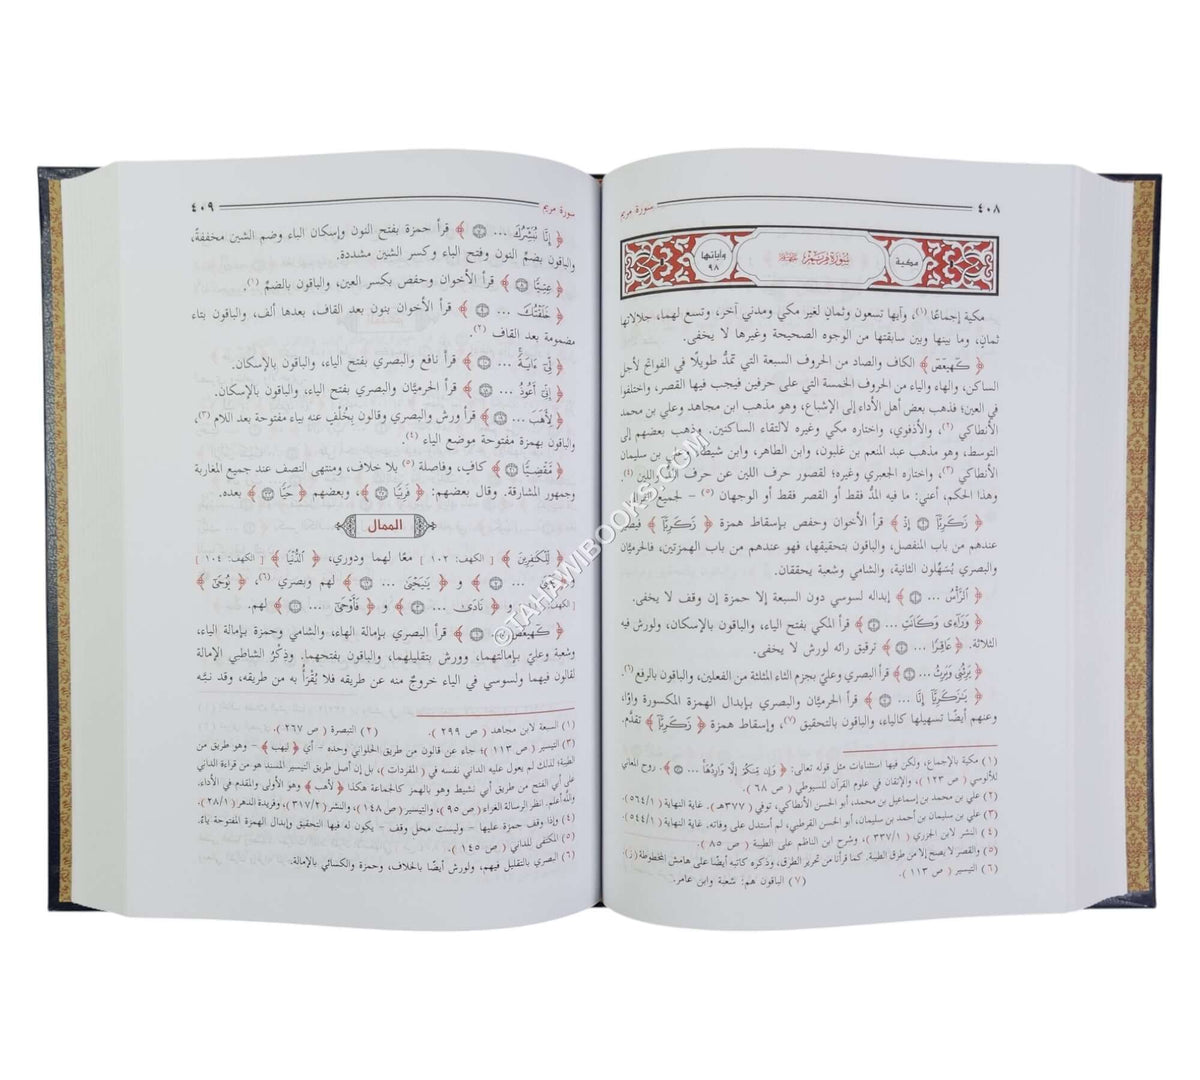 ٤٠٨
سورة مريم
مكية
سورة مريم
وآياتها ٩٨
مكية إجماعًا (١)، وآيها تسعون وثمان لغير مكي ومدني آخر، وتسع لهما، جلالاتها
ثمانٍ، وما بينها وبين سابقتها من الوجوه الصحيحة وغيرها لا يخفى.
﴿ كَهيعَصَ ﴾ الكاف والصاد من الحروف السبعة التي تمدُّ طويلًا في الفواتح لأجل
الساكن، والهاء والياء من الحروف الخمسة التي على حرفين فيجب فيها القصر، واختلفوا
في العين؛ فذهب بعض أهل الأداء إلى الإشباع، وهو مذهب ابن مجاهد وعلي بن محمد
الأنطاكي (٢)، والأذفوي، واختاره مكي وغيره لالتقاء الساكنين. وذهب بعضهم إلى
التوسط، وهو مذهب عبد المنعم بن غلبون، وابن الطاهر، وابن شيطا، وعلي بن سليمان
الأنطاكي (٣)، واختاره الجعبري وغيره؛ لقصور حرف اللين عن حرف المد واللين (٤).
وهذا الحكم، أعني: ما فيه المدُّ فقط أو القصر فقط أو الوجهان (٥) – لجميع القراء.
﴿ زَكَرِيَّآ ۝ إِذْ ﴾ قرأ الأخوان وحفص بإسقاط همزة ﴿ زَكَرِيَّآ ﴾
عندهم من باب المنفصل، والباقون بتحقيقها، فهو عندهم من باب الهمزتين، فالحرميَّان
والبصري يُسَهِّلون الثانية، والشامي وشعبة يحققان.
﴿ ٱلرَّأْسُ ... ۝ ﴾ إبداله لسوسي دون السبعة إلا حمزة إن وقف لا يخفى.
﴿ وَرَآءِى وَكَانَتِ ... ۝ ﴾ قرأ المكي بفتح الياء، والباقون بالإسكان، ولورش فيه
الثلاثة. ﴿ عَاقِرًا ... ۝ ﴾ ترقيق رائه لورش لا يخفى.
﴿ يَرِثُنِى وَيَرِثُ ... ۝ ﴾ قرأ البصري وعليّ بجزم الثاء المثلثة من الفعلين، والباقون بالرفع (٦).
﴿ يَـٰزَكَرِيَّآ إِنَّا ... ۝ ﴾ قرأ الحرميَّان والبصري بإبدال الهمزة المكسورة واوًا،
وعنهم أيضًا تسهيلها كالياء، والباقون بالتحقيق (٧)، وإسقاط همزة ﴿ زَكَرِيَّآ ﴾ تقدَّم.
(١) مكية بالإجماع، ولكن فيها استثناءات مثل قوله تعالى: ﴿ وَإِن مِّنكُمْ إِلَّا وَارِدُهَا ... ۝ ﴾. روح المعاني
للآلوسي ( ص ١٢٣ )، والإتقان في علوم القرآن للسيوطي ( ص ٦٨ ).
(٢) علي بن محمد بن إسماعيل بن محمد، أبو الحسن الأنطاكي، توفي ( ٣٧٧هـ ). غاية النهاية ( ٥٦٤/١ ).
(٣) علي بن سليمان بن أحمد بن سليمان، أبو الحسن القرطبي، لم أستدل على وفاته. غاية النهاية ( ٥٤٤/١ ).
(٤) النشر لابن الجزري ( ٣٣٧/١ )، وشرح ابن الناظم على الطيبة ( ص ٨٥ ).
(٥) والقصر لا يصح إلا من طرق الطيبة، كما قرأنا من تحرير الطرق، وذكره كاتبه أيضًا على هامش المخطوطة (ز).
(٦) التيسير ( ص ١١٣ ).
(٧) الباقون هم: شعبة وابن عامر.
سورة مريم
٤٠٩
﴿ إِنَّا نُبَشِّرُكَ ... ۝ ﴾ قرأ حمزة بفتح النون وإسكان الباء وضم الشين مخففةً،
والباقون بضمِّ النون وفتح الباء وكسر الشين مشددة.
﴿ عِتِيًّا ۝ ﴾ قرأ الأخوان وحفص بكسر العين، والباقون بالضمِّ (١).
﴿ خَلَقْتُكَ ... ۝ ﴾ قرأ الأخوان بنون بعد القاف، بعدها ألف، والباقون بتاء
مضمومة بعد القاف (٢).
﴿ لِّىٓ ءَايَةً ... ۝ ﴾ قرأ نافع والبصري بفتح الياء، والباقون بالإسكان.
﴿ إِنِّىٓ أَعُوذُ ... ۝ ﴾ قرأ الحرميَّان والبصري بفتح الياء، والباقون بالإسكان.
﴿ لِأَهَبَ ... ۝ ﴾ قرأ ورش والبصري وقالون بِخُلْفٍ عنه بياء مفتوحة بعد اللام (٣)،
والباقون بهمزة مفتوحة موضع الياء (٤).
﴿ مَّقْضِيًّا ۝ ﴾ كافٍ، وفاصلة (٥) بلا خلاف، ومنتهى النصف عند جميع المغاربة
وجمهور المشارقة. وقال بعضهم: ﴿ فَرِيًّا ۝ ﴾، وبعضهم ﴿ حَيًّا ۝ ﴾ بعده.
الممال
﴿ لِّلْكَـٰفِرِينَ ﴾ [ الكهف: ١٠٢ ] معًا لهما ودوري، ﴿ ٱلدُّنْيَا ﴾ [ الكهف: ١٠٤ ]
... ۝ ﴾ و ﴿ يَـٰيَحْيَىٰ ... ۝ ﴾ لهم وبصري (٦)، ﴿ يُوحَىٰٓ ﴾
[ الكهف: و ﴿ نَادَىٰ ... ۝ ﴾ و ﴿ فَأَوْحَىٰٓ ... ۝ ﴾ لهم.
﴿ كَهيعَصَ ۝ ﴾ قرأ البصري بإمالة الهاء، والشامي وحمزة بإمالة الياء،
وشعبة وعليّ بإمالتهما، وورش بتقليلهما، والباقون بفتحهما. وذِكْرُ الشاطبي الإمالة
لقالون فيهما ولسوسي في الياء خروجٌ منه عن طريقه فلا يُقْرَأُ به من طريقه، وقد نبَّه
(١) السبعة لابن مجاهد ( ص ٢٩٩ ). (٢) التبصرة ( ص ٢٦٧ ).
(٣) التيسير ( ص ١١٣ )؛ جاء عن قالون من طريق الحلواني وحده – أي ﴿ ليهب ﴾ – وهو طريق من
الطيبة؛ لذلك لم يعول عليه الداني نفسه في ( المفردات )، بل إن أصل طريق التيسير المسند هو من قراءة الداني
على أبي الفتح من طريق أبي نشيط وهو بالهمز كالجماعة هكذا ﴿ لأهب ﴾ وهو الأولى والمقدم في الأداء،
والله أعلم. انظر الرسالة الغراء ( ص ٩٥ )، والتيسير ( ص ١٤٨ )، والنشر ( ٣١٧/٢ )، وفريدة الدهر ( ٢٨/١ ).
(٤) وإذا وقف حمزة عليها – وليست محل وقف – يكون له فيها التحقيق وإبدال الهمزة المفتوحة ياءً.
(٥) المكتفى للداني ( ص ١٤٥ ).
(٦) البصري بالتقليل فيهم، ولورش أيضًا بالخلاف، وحمزة والكسائي بالإمالة.
©TAHAWIBOOKS.COM